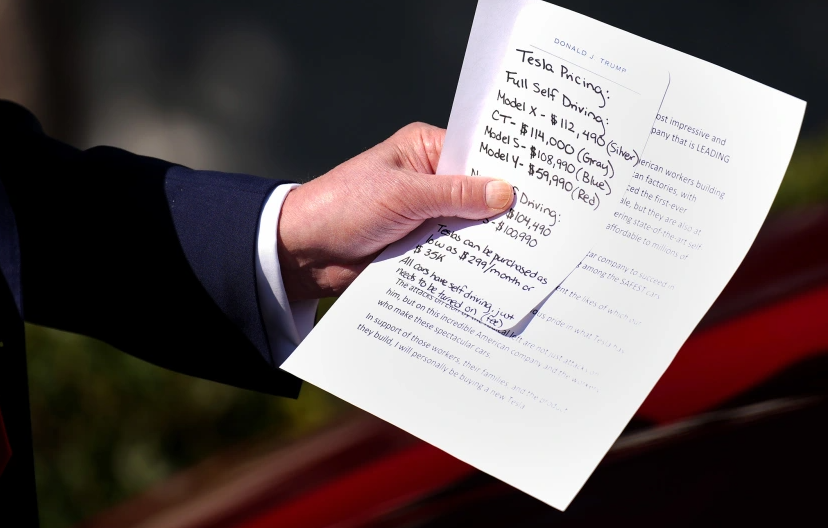 DONALD J. TRUMP
Tesla Pricing:
Full Self Driving:
Model X - $112,490 (Silver)
CT- $114,000 (Gray)
Model S- $108,990 (Blue)
Model Y- $59,990 (Red)
Driving:
$104,490
- $100,990
Teslas can be purchased as
low as $299/month or
$35K
All cars have self driving, just
needs to be turned on (fee)
ost impressive and
pany that is LEADING
erican workers building
can factories, with
ced the first-ever
le, but they are also at
ering state-of-the-art self
affordable to millions of
ar company to succeed in
among the SAFEST cars
nt the likes of which our
us pride in what Tesla has
The attacks
al left are not just attacks on
him, but on this incredible American company and the workers
who make these spectacular cars.
In support of those workers, their families, and the product
they build, I will personally be buying a new Tesla